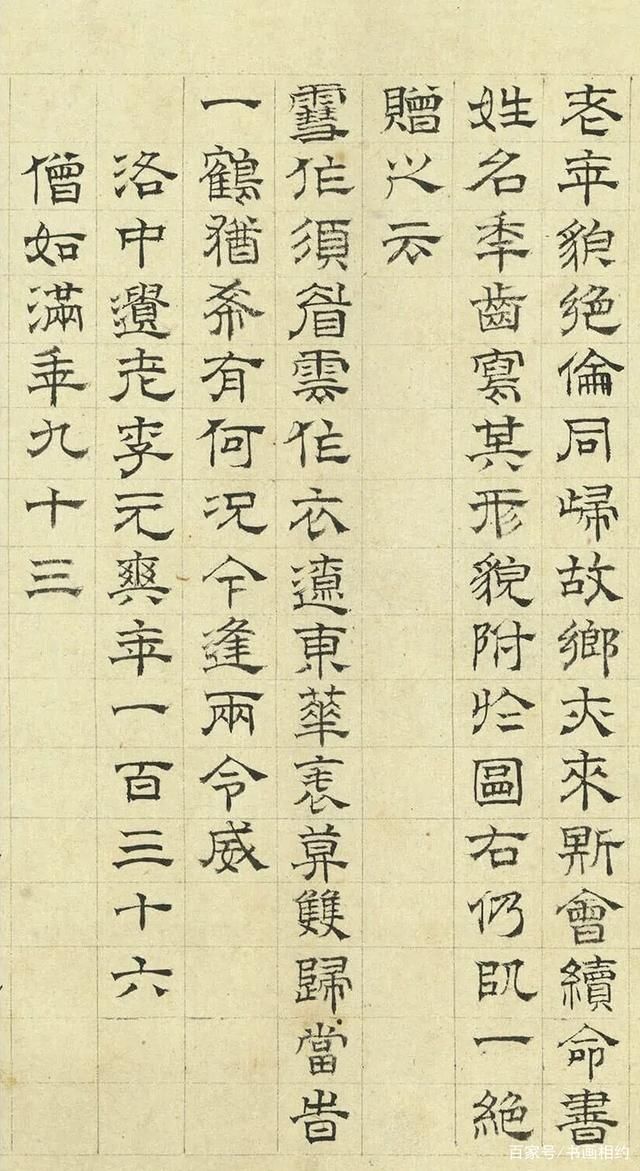 老年貌絕倫同歸故鄉夾來斯會續命書
姓名季齒寫其形貌附於圖右仍既一絕
贈之云
雪作須眉雲作衣遼東華表暮雙歸當昔
一鶴猶希有何況今逢兩令威
洛中遺老李元爽年一百三十六
僧如滿年九十三
百家号/书画相约